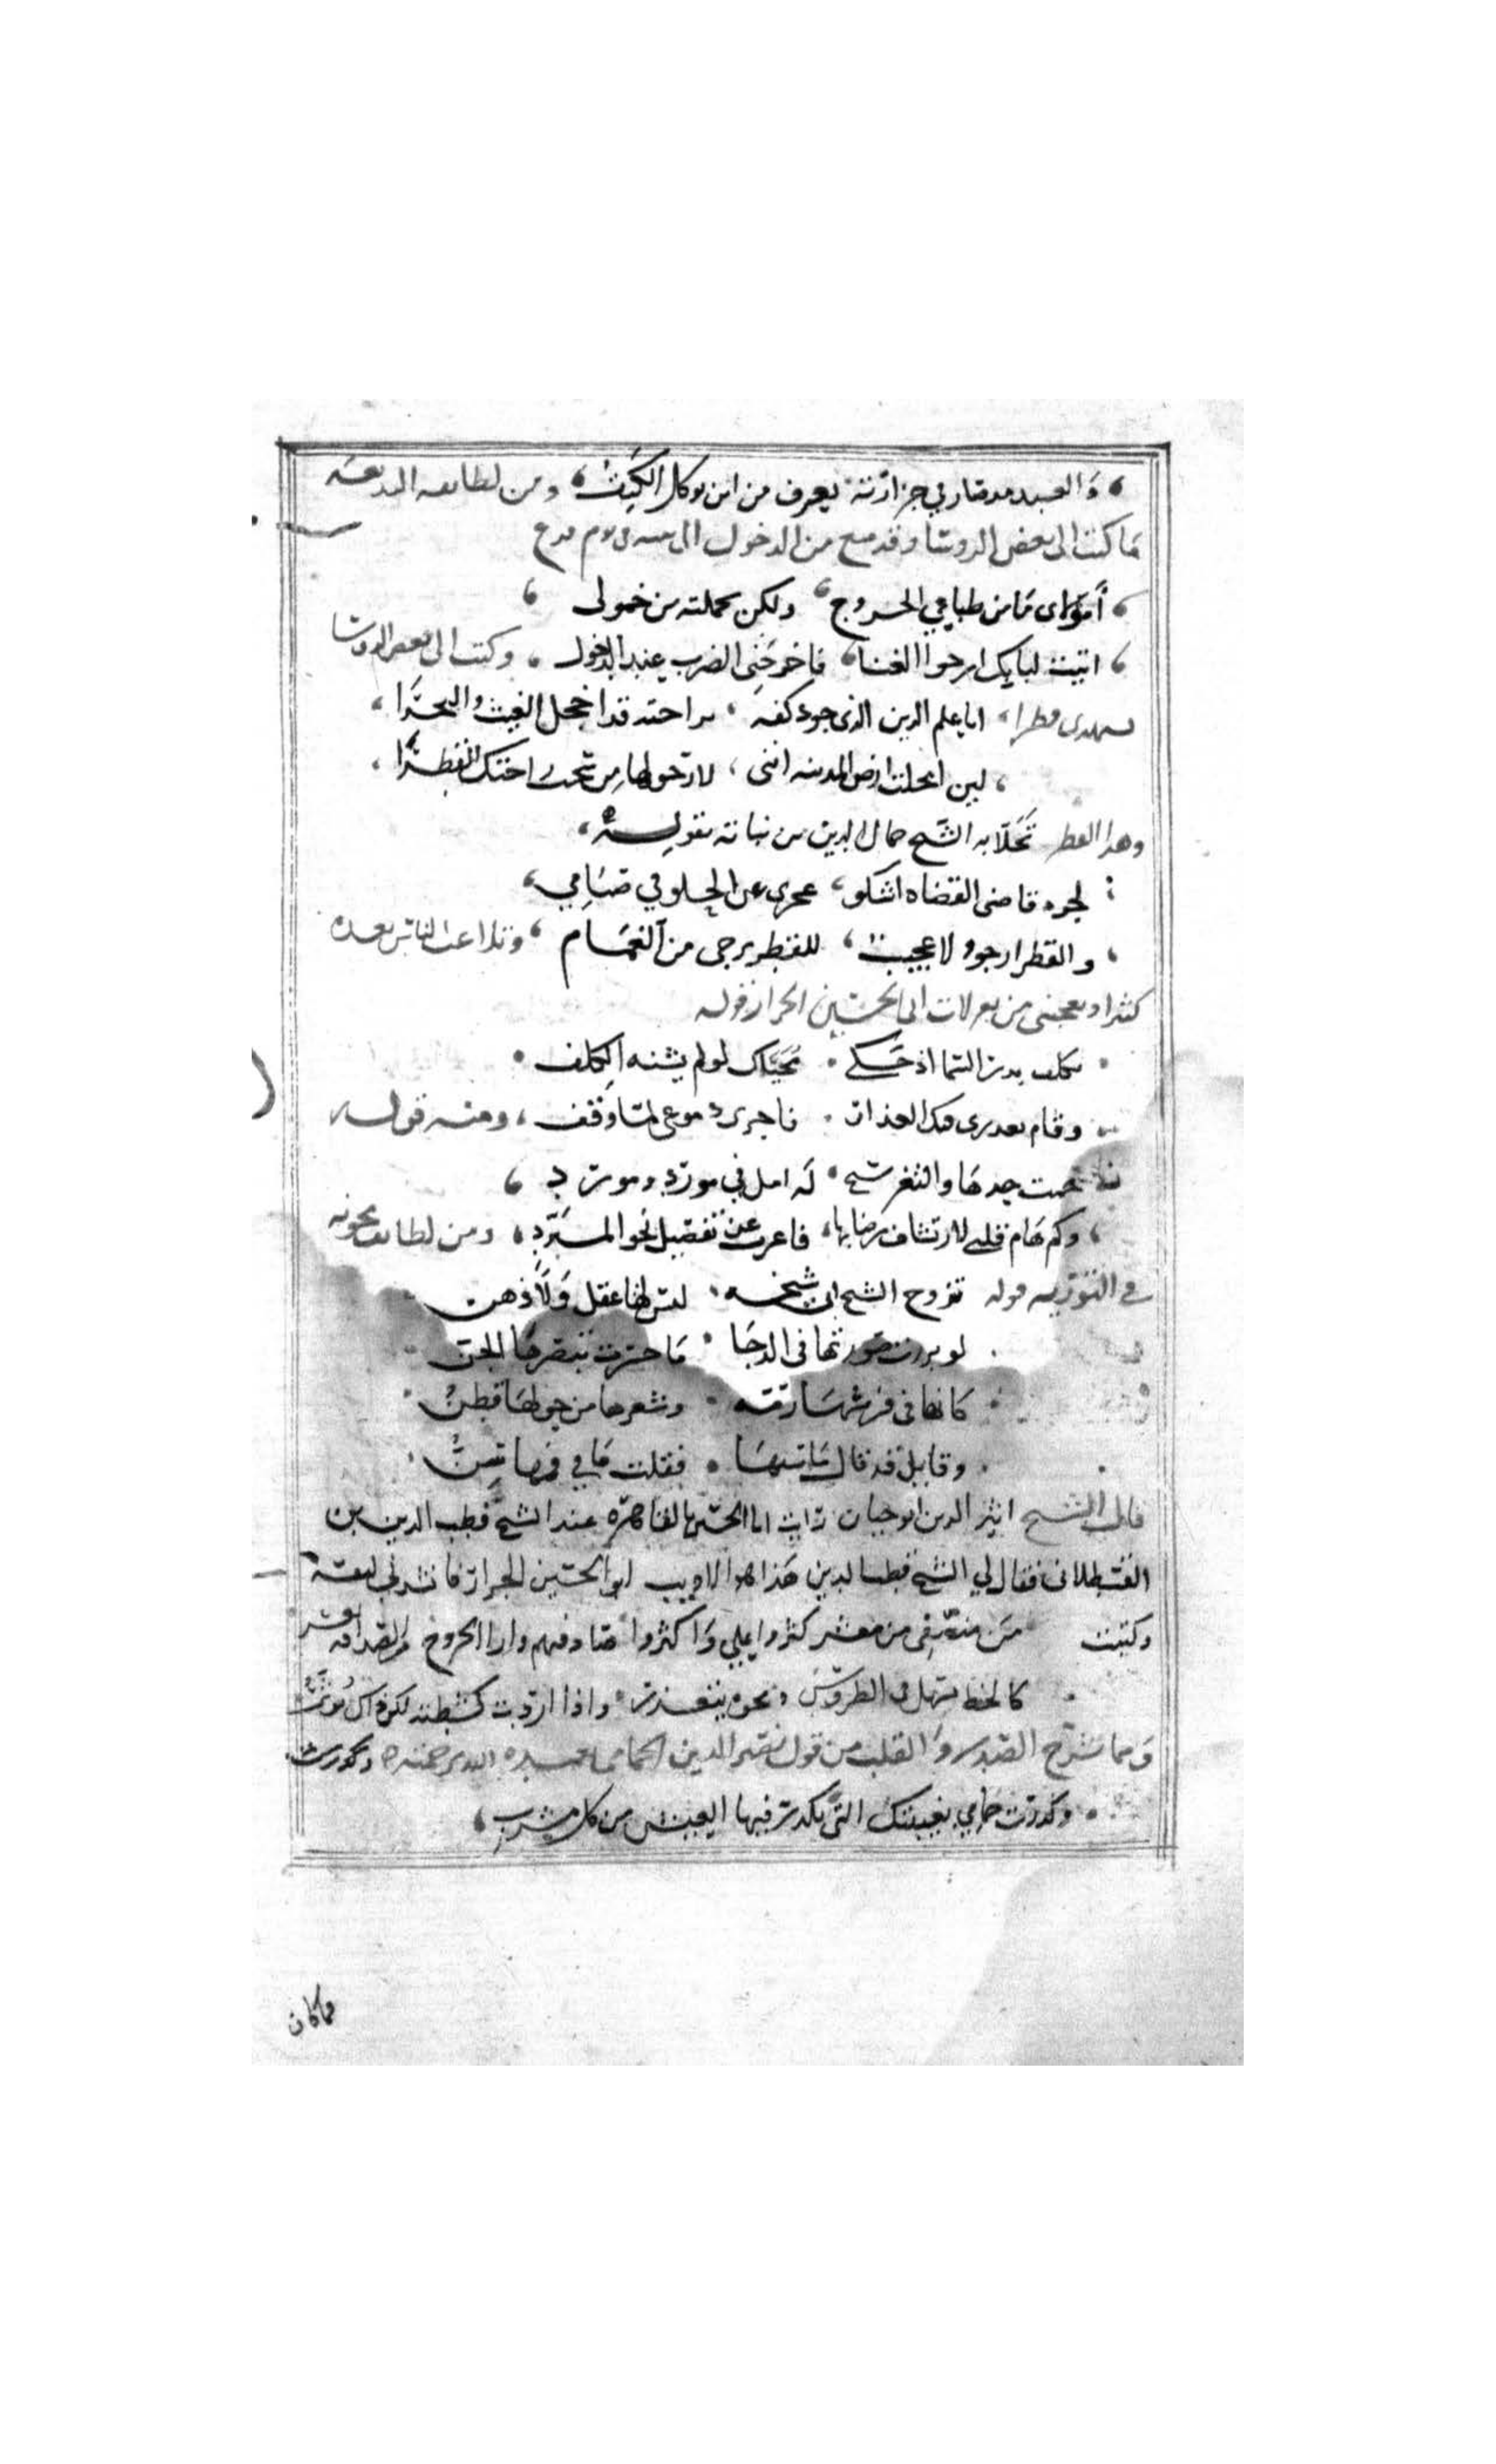 والعبد مد صار في جزارته يعرف من اين توكل الكتف ومن لطايفه البديعه
ما كتب الى بعض الروسا وقد منع من الدخول الى بيته في يوم فرح
امولاى ما من طباعي الخروج ولكن تعلمته من خمولى
اتيت لبابك ارجوا الغنا فاخرجنى الضرب عند الدخول وكتب الى بعض الروسا
يستهدى قطرا ايا علم الدين الذى جود كفه براحته قد اخجل الغيث والبحرا
لين امحلت ارض المدينه اننى لارجو لها من سحب راحتك القطرا
وهدا القطر تحلا به الشيخ جمال الدين بن نباته بقوله
لجود قاضى القضاه اشكو عجزى عن الحلو في صيامي
والقطر ارجو ولا عجيب للقطر يرجى من الغمام وتلاعب الناس بعده
كثيرا ويعجبنى من تغزلات ابى الحسين الجزار قوله
تكلف بدر السما اذ حكى محياك لو لم يشنه الكلف
وقام بعدرى فيك العذار فاجرى دموعى لما وقف ومنه قوله
حمت خدها والثغر شح له امل في مورد ومورد
وكم هام قلبى لارتشاف رضابها فاعرب عن تفصيل نحو المبرد ومن لطايف مجونه
في التوريه قوله تزوج الشيخ ابى شيخه ليس لها عقل ولا ذهن
لو برزت صورتها فى الدجا ما جسرت تبصرها الجن
كانها فى فرشها رمه وشعرها من حولها قطن
وقايل قد قال ما سنها فقلت ما في فمها سن
قال الشيخ اثير الدين ابو حيان رايت ابا الحسين بالقاهره عند الشيخ قطب الدين بن
القسطلانى فقال لي الشيخ قطب الدين هذا هو الاديب ابو الحسين الجزار فانشدني لنفسه
وكتبت من منصفى من معشر كثروا علي واكثروا صادقهم وارا الخروج من الصداقه
كالخط يسهل فى الطروس ومحوه يتعذر واذا اردت كشطته لكن ذاك يوثر
ومما يشرح الصدور والقلب من قول نصير الدين الحمامى
وكدرت حمامي بغيبتك التى تكدر فيها العيش من كل مشرب
فما كان